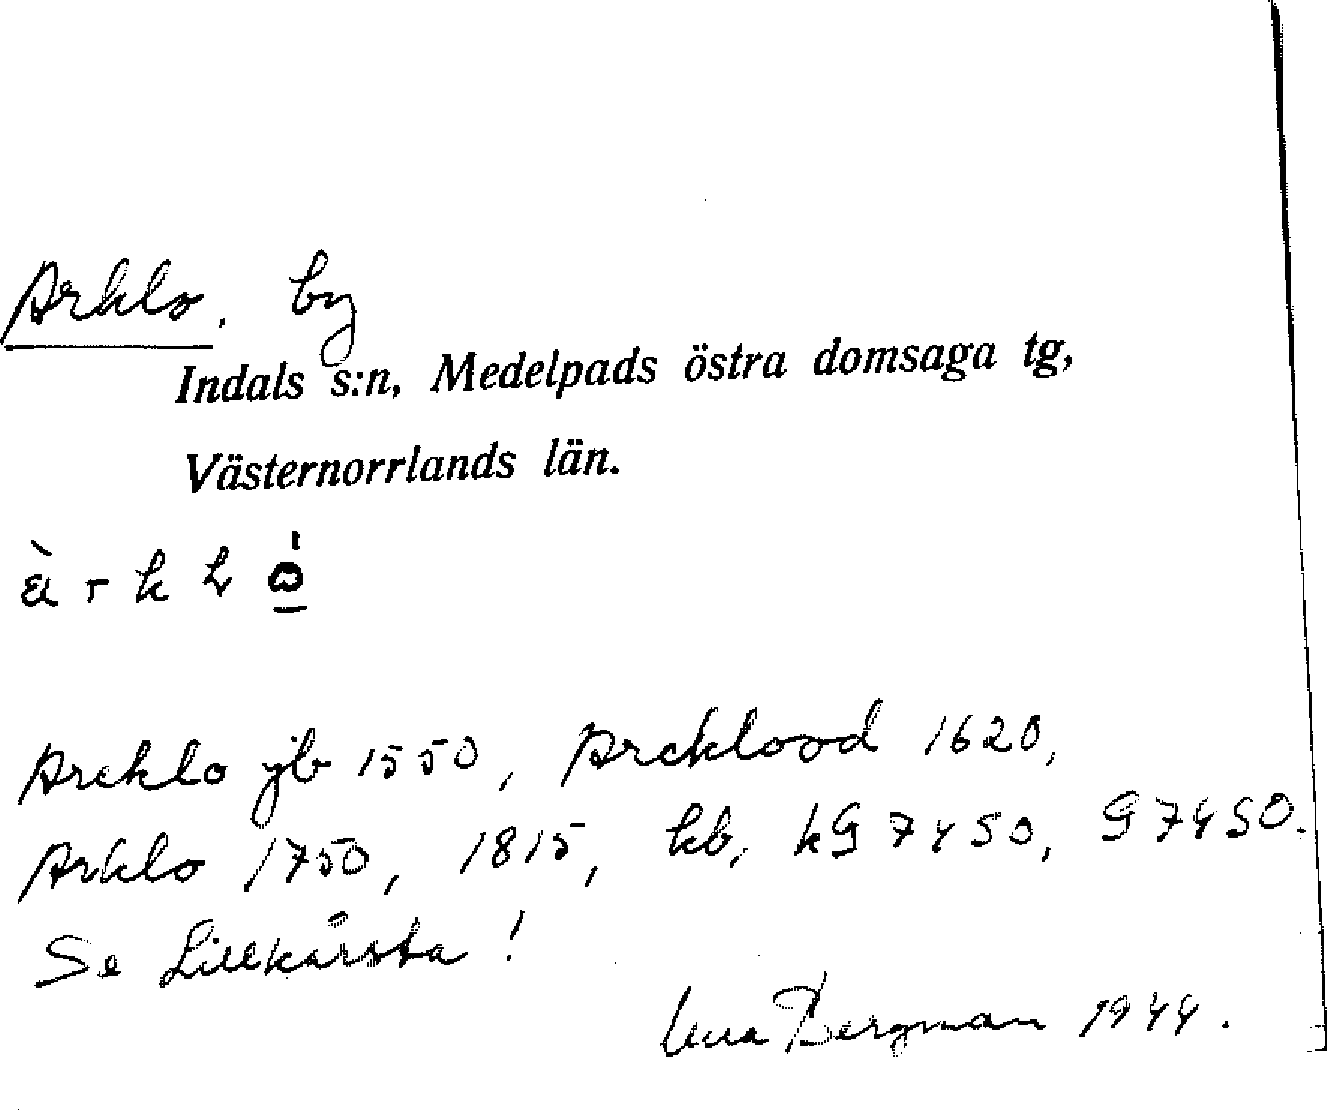 Arklo. by
Indals s:n, Medelpads östra domsaga tg,
Västernorrlands län.
Arcklo jb 1550, Arcklood 1620,
Arklo 1750, 1815, kb, kG 7450, G 7450.
Se Lillkärsta!
Bergman 1944.